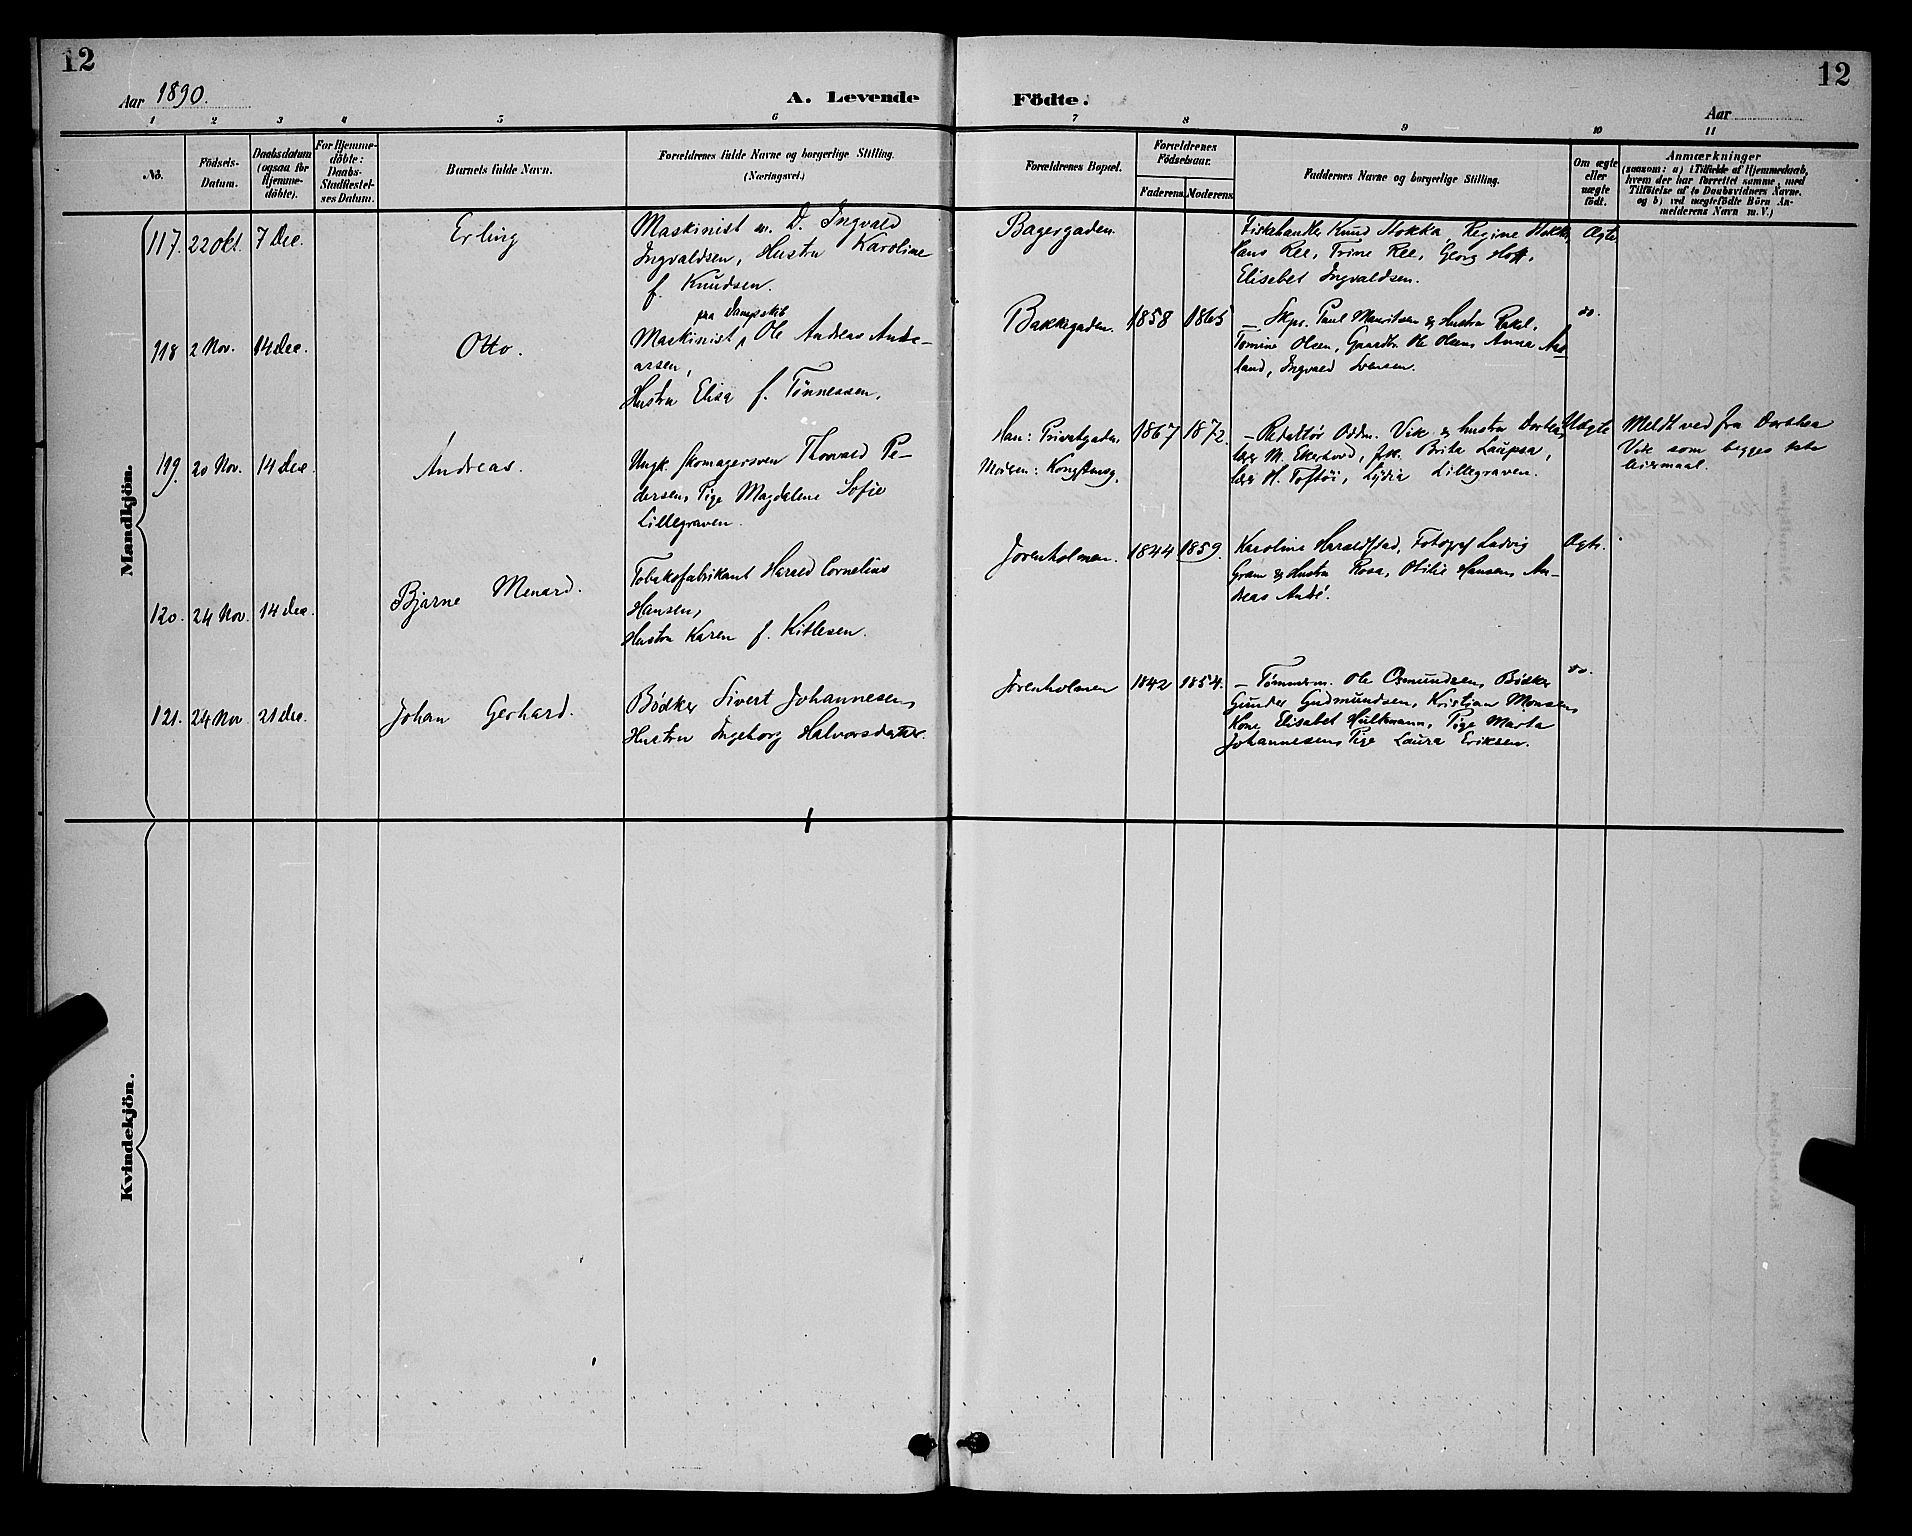 12
12
Aar 1890.
A. Levende Födte.
Aar
1 2 3 4 5 6 7 8 9 10 11
No.
Födsels-
Datum.
Daabsdatum
(ogsaa for
Hjemme-
döbte).
For Hjemme-
döbte:
Daabs-
Stadfæstel-
ses Datum.
Barnets fulde Navn.
Forældrenes fulde Navne og borgerlige Stilling.
(Næringsvei.)
Forældrenes Bopæl.
Forældrenes
Födselsaar.
Faderens. Moderens.
Faddernes Navne og borgerlige Stilling.
Om ægte
eller
uægte
födt.
Anmærkninger
(saasom: a) i Tilfælde af Hjemmedaab,
hvem der har forrettet samme, med
Tilföielse af to Daabsvidners Navne,
og b) ved uægtefödte Börn An-
melderens Navn m. V.)
Mandkjön.
117. 22 Okt. 7 Dec. Erling
Maskinist m. D. Ingvald
Ingvaldsen, Hustru Karoline
f. Knudsen.
Bagergaden.
Fiskehandler Knud Stokka, Regine Stokka,
Hans Ree, Trine Ree, Georg Hoff,
Elisabet Ingvaldsen.
Ægte
118 2 Nov. 14 Dec. Otto.
paa Dampskib
Maskinist, Ole Andreas Andre-
assen,
Hustru Elisa f. Tönnessen,
Bakkegaden. 1858 1865
— Skpr. Paul Mauritsen & Hustru Rakel,
Tomine Olsen, Gaardbr. Ole Olsen, Anna
land, Ingvald Svensen.
do.
119. 20 Nov. 14 Dec. Andreas.
Ungk. Skomagersven Thorvald Pe-
dersen, Pige Magdalene Sofie
Lillegraven.
Han: Privatgaden,
Moderen: Kongstensg.
1867 1872.
— Redaktör Oddm. Vik & Hustru Dorthea,
M. Ekerhovd, frk. Brita Laupsa,
H. Toftöi, Lydia Lillegraven.
Uægte
Meldt ved fru Dorthea
Vik som begges 1ste
leiermaal.
120. 24 Nov. 14 Dec. Bjarne Menard.
Tobaksfabrikant Harald Cornelius
Hansen,
Hustru Karen f. Kitlesen.
Jorenholmen. 1844 1859.
Karoline Haraldstad, Fotograf Ludvig
Gram & Hustru Rosa, Otilie Hansen, An-
dreas André.
Ægte.
121. 24 Nov 21 Dec. Johan Gerhard.
Bödker Sivert Johannesen,
Hustru Ingeborg Halvorsdatter.
Jorenholmen 1842 1854.
— Tömmerm. Ole Osmundsen, Bödker
Gunder Gudmundsen, Kristian Monsen,
Kone Elisabet Hultmann, Pige Marta
Johannesen, Pige Laura Eriksen.
do.
Kvindekjön.